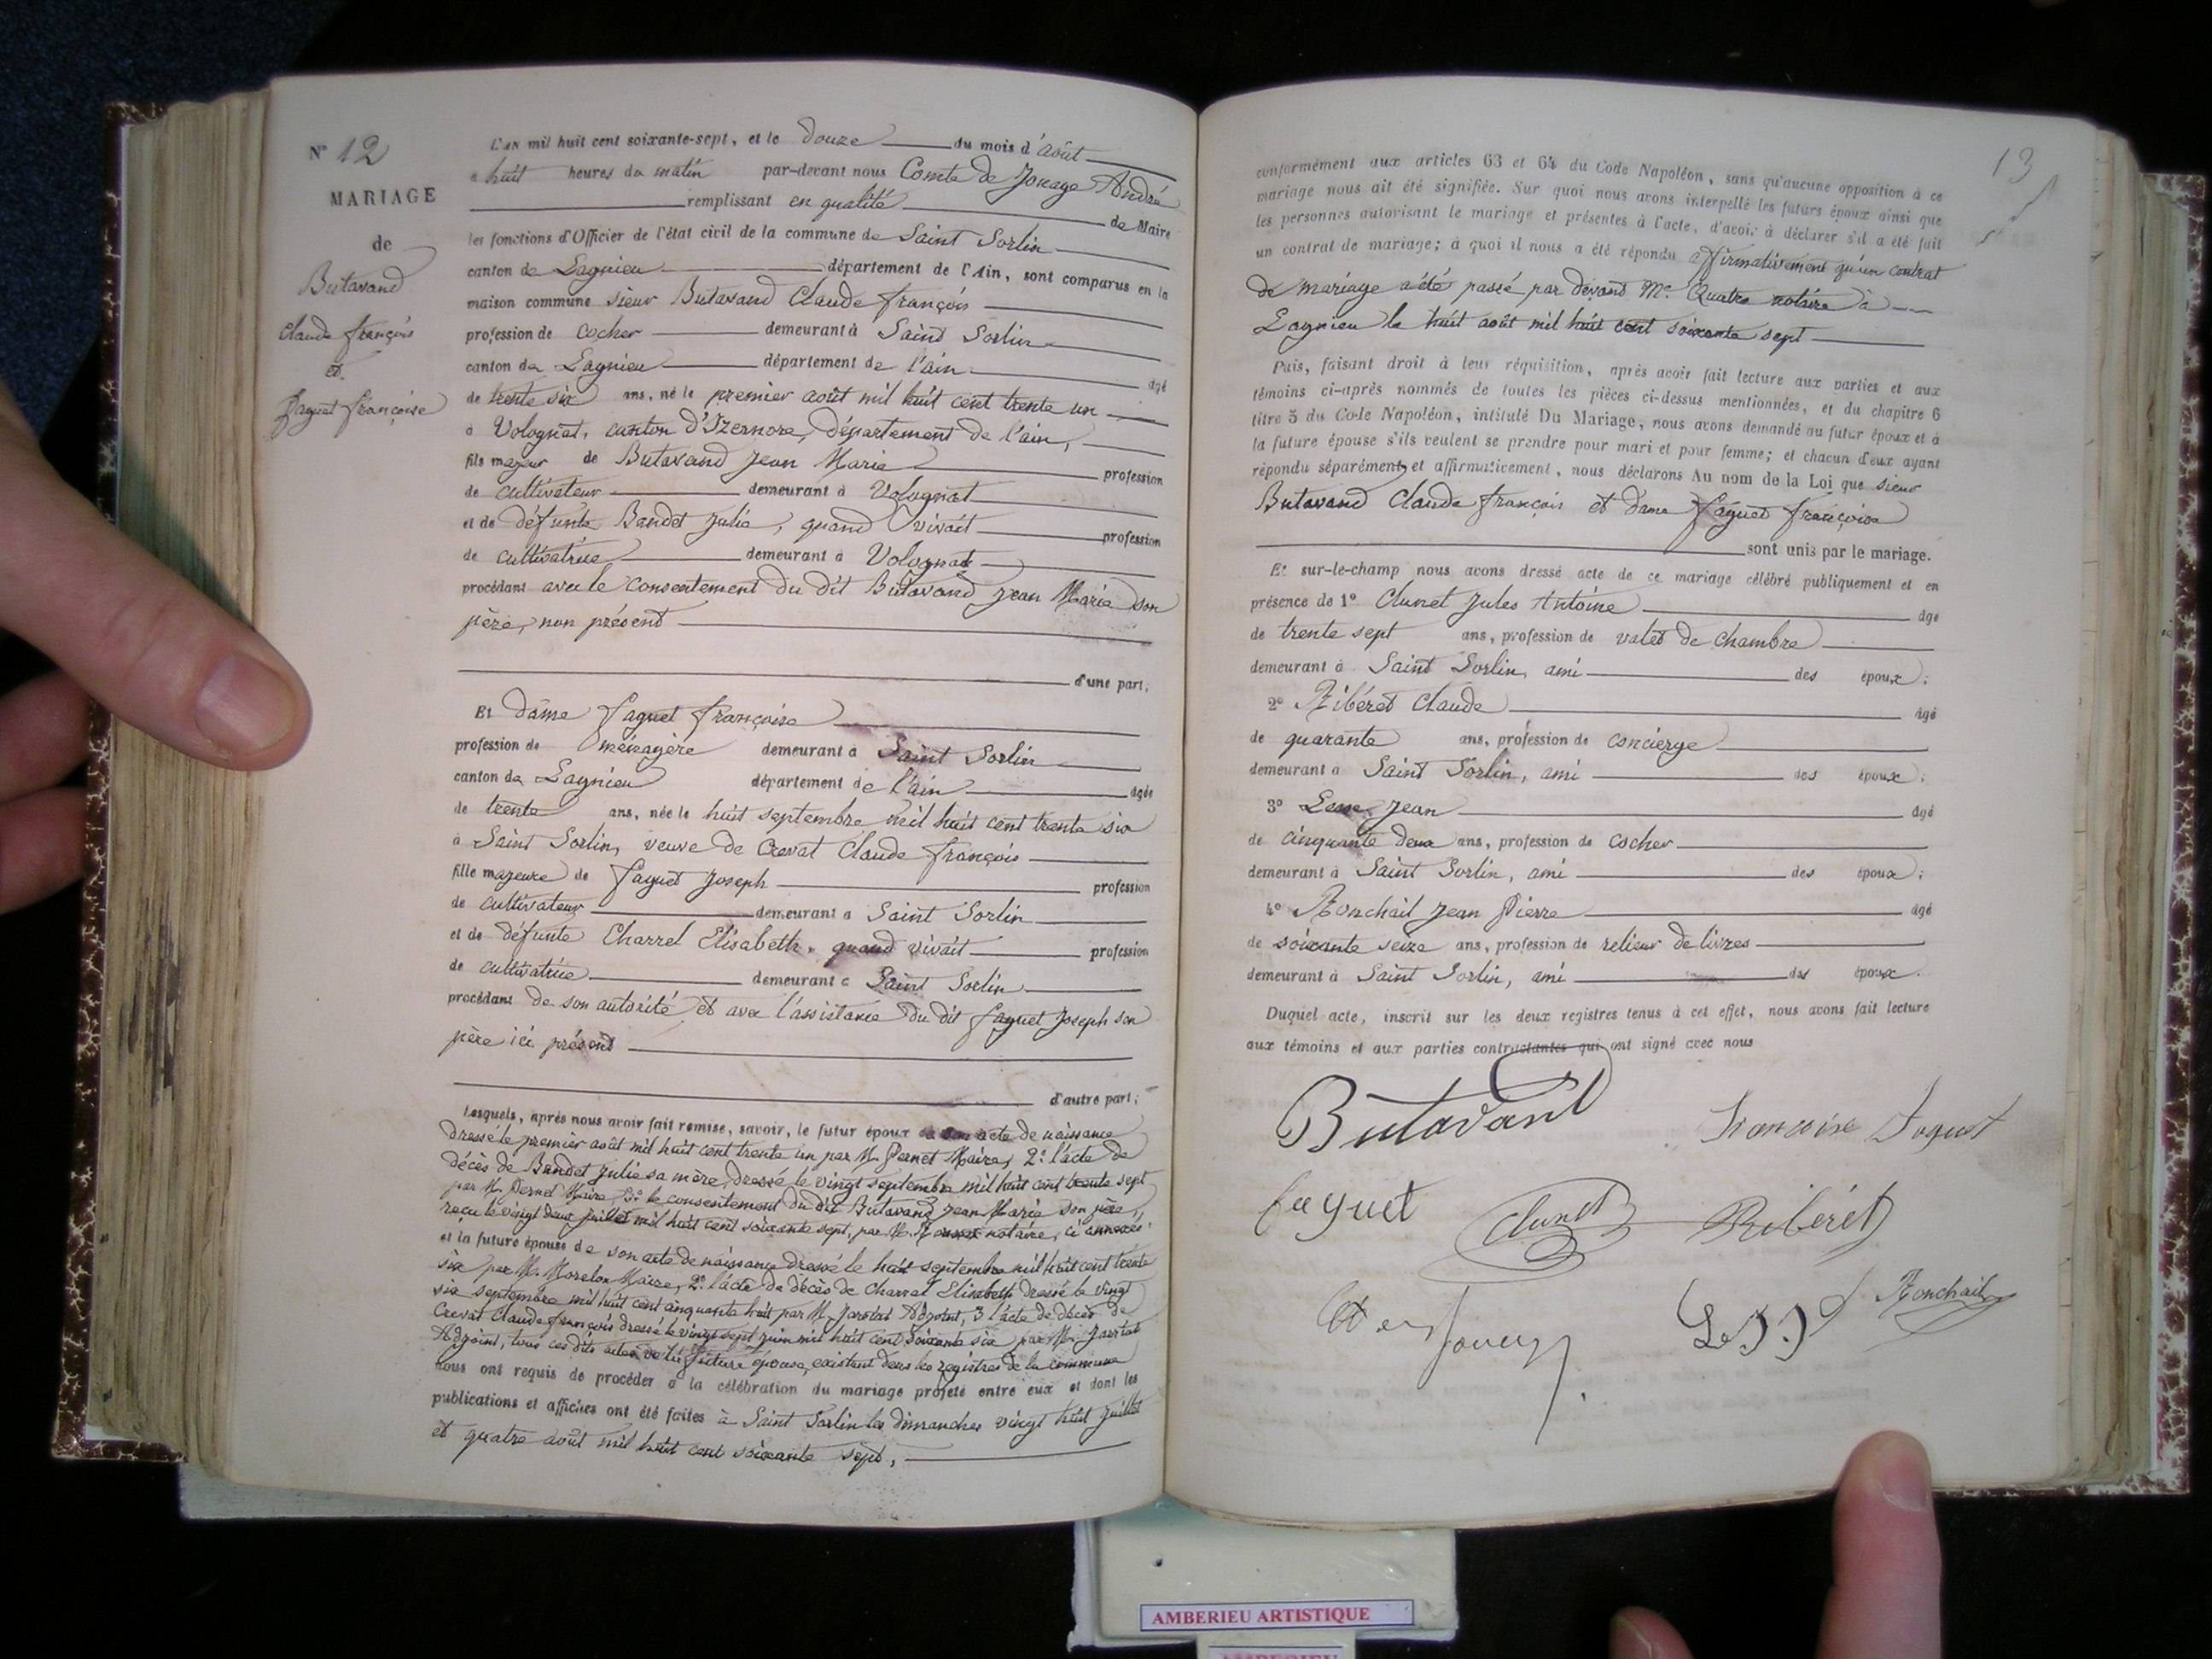 N° 12
MARIAGE
de
Butavand
Claude françois
et
faguet françoise
L'AN mil huit cent soixante-sept, et le douze du mois d'août
à huit heures du matin par-devant nous Comte de Jonage André
remplissant en qualité de Maire
les fonctions d'Officier de l'état civil de la commune de Saint Sorlin
canton de Lagnieu département de l'Ain, sont comparus en la
maison commune sieur Butavand Claude françois
profession de cocher demeurant à Saint Sorlin
canton de Lagnieu département de l'ain âgé
de trente six ans, né le premier août mil huit cent trente un
à Volognat, canton d'Izernore, département de l'ain,
fils majeur de Butavand Jean Marie profession
de cultivateur demeurant à Volognat
et de défunte Bandet Julie, quand vivait profession
de cultivatrice demeurant à Volognat
procédant avec le consentement du dit Butavand Jean Marie son
père, non présent
d'une part;
Et dame faguet françoise
profession de ménagère demeurant à Saint Sorlin
canton de Lagnieu département de l'ain âgée
de trente ans, née le huit septembre mil huit cent trente six
à Saint Sorlin, veuve de Crevat Claude françois
fille majeure de faguet Joseph profession
de cultivateur demeurant à Saint Sorlin
et de défunte Charrel Elisabeth, quand vivait profession
de cultivatrice demeurant à Saint Sorlin
procédant de son autorité et avec l'assistance du dit faguet Joseph son
père ici présent
d'autre part;
Lesquels, après nous avoir fait remise, savoir, le futur époux acte de naissance
dressé le premier août mil huit cent trente un par M. Pernet Maire, 2° l'acte de
décès de Bandet Julie sa mère, dressé le vingt septembre mil huit cent trente sept
par M. Pernet Maire, 3° le consentement du dit Butavand Jean Marie son père,
reçu le vingt deux juillet mil huit cent soixante sept, par M. notaire, ci annexés;
et la future épouse de son acte de naissance dressé le huit septembre mil huit cent trente
six par M. Morelon Maire, 2° l'acte de décès de Charrel Elisabeth dressé le vingt
six septembre mil huit cent cinquante huit par M. Jarolat Adjoint, 3 l'acte de décès de
Crevat Claude françois dressé le vingt sept juin mil huit cent soixante six par M. Jarrolat
Adjoint, tous ces dits actes de la future épouse, existent dans les registres de la commune
nous ont requis de procéder à la célébration du mariage projeté entre eux et dont les
publications et affiches ont été faites à Saint Sorlin les dimanches vingt huit juillet
et quatre août mil huit cent soixante sept,
13
conformément aux articles 63 et 64 du Code Napoléon, sans qu'aucune opposition à ce
mariage nous ait été signifiée. Sur quoi nous avons interpellé les futurs époux ainsi que
les personnes autorisant le mariage et présentes à l'acte, d'avoir à déclarer s'il a été fait
un contrat de mariage; à quoi il nous a été répondu affirmativement qu'un contrat
de mariage a été passé par devand Me. Quatre notaire à
Lagnieu le huit août mil huit cent soixante sept
Puis, faisant droit à leur réquisition, après avoir fait lecture aux parties et aux
témoins ci-après nommés de toutes les pièces ci-dessus mentionnées, et du chapitre 6
titre 5 du Code Napoléon, intitulé Du Mariage, nous avons demandé au futur époux et à
la future épouse s'ils veulent se prendre pour mari et pour femme; et chacun d'eux ayant
répondu séparément et affirmativement, nous déclarons Au nom de la Loi que sieur
Butavand Claude françois et dame faguet françoise
sont unis par le mariage.
Et sur-le-champ nous avons dressé acte de ce mariage célébré publiquement et en
présence de 1° Clunet Jules Antoine âgé
de trente sept ans, profession de valet de chambre
demeurant à Saint Sorlin, ami des époux;
2° Ribéret Claude âgé
de quarante ans, profession de concierge
demeurant à Saint Sorlin, ami des époux;
3° Jean âgé
de cinquante deux ans, profession de cocher
demeurant à Saint Sorlin, ami des époux;
4° Ronchail Jean Pierre âgé
de soixante seize ans, profession de relieur de livres
demeurant à Saint Sorlin, ami des époux.
Duquel acte, inscrit sur les deux registres tenus à cet effet, nous avons fait lecture
aux témoins et aux parties contractantes qui ont signé avec nous
Butavand
françoise faguet
faguet
Clunet
Ribéret
Ronchail
AMBERIEU ARTISTIQUE
AMBERIEU